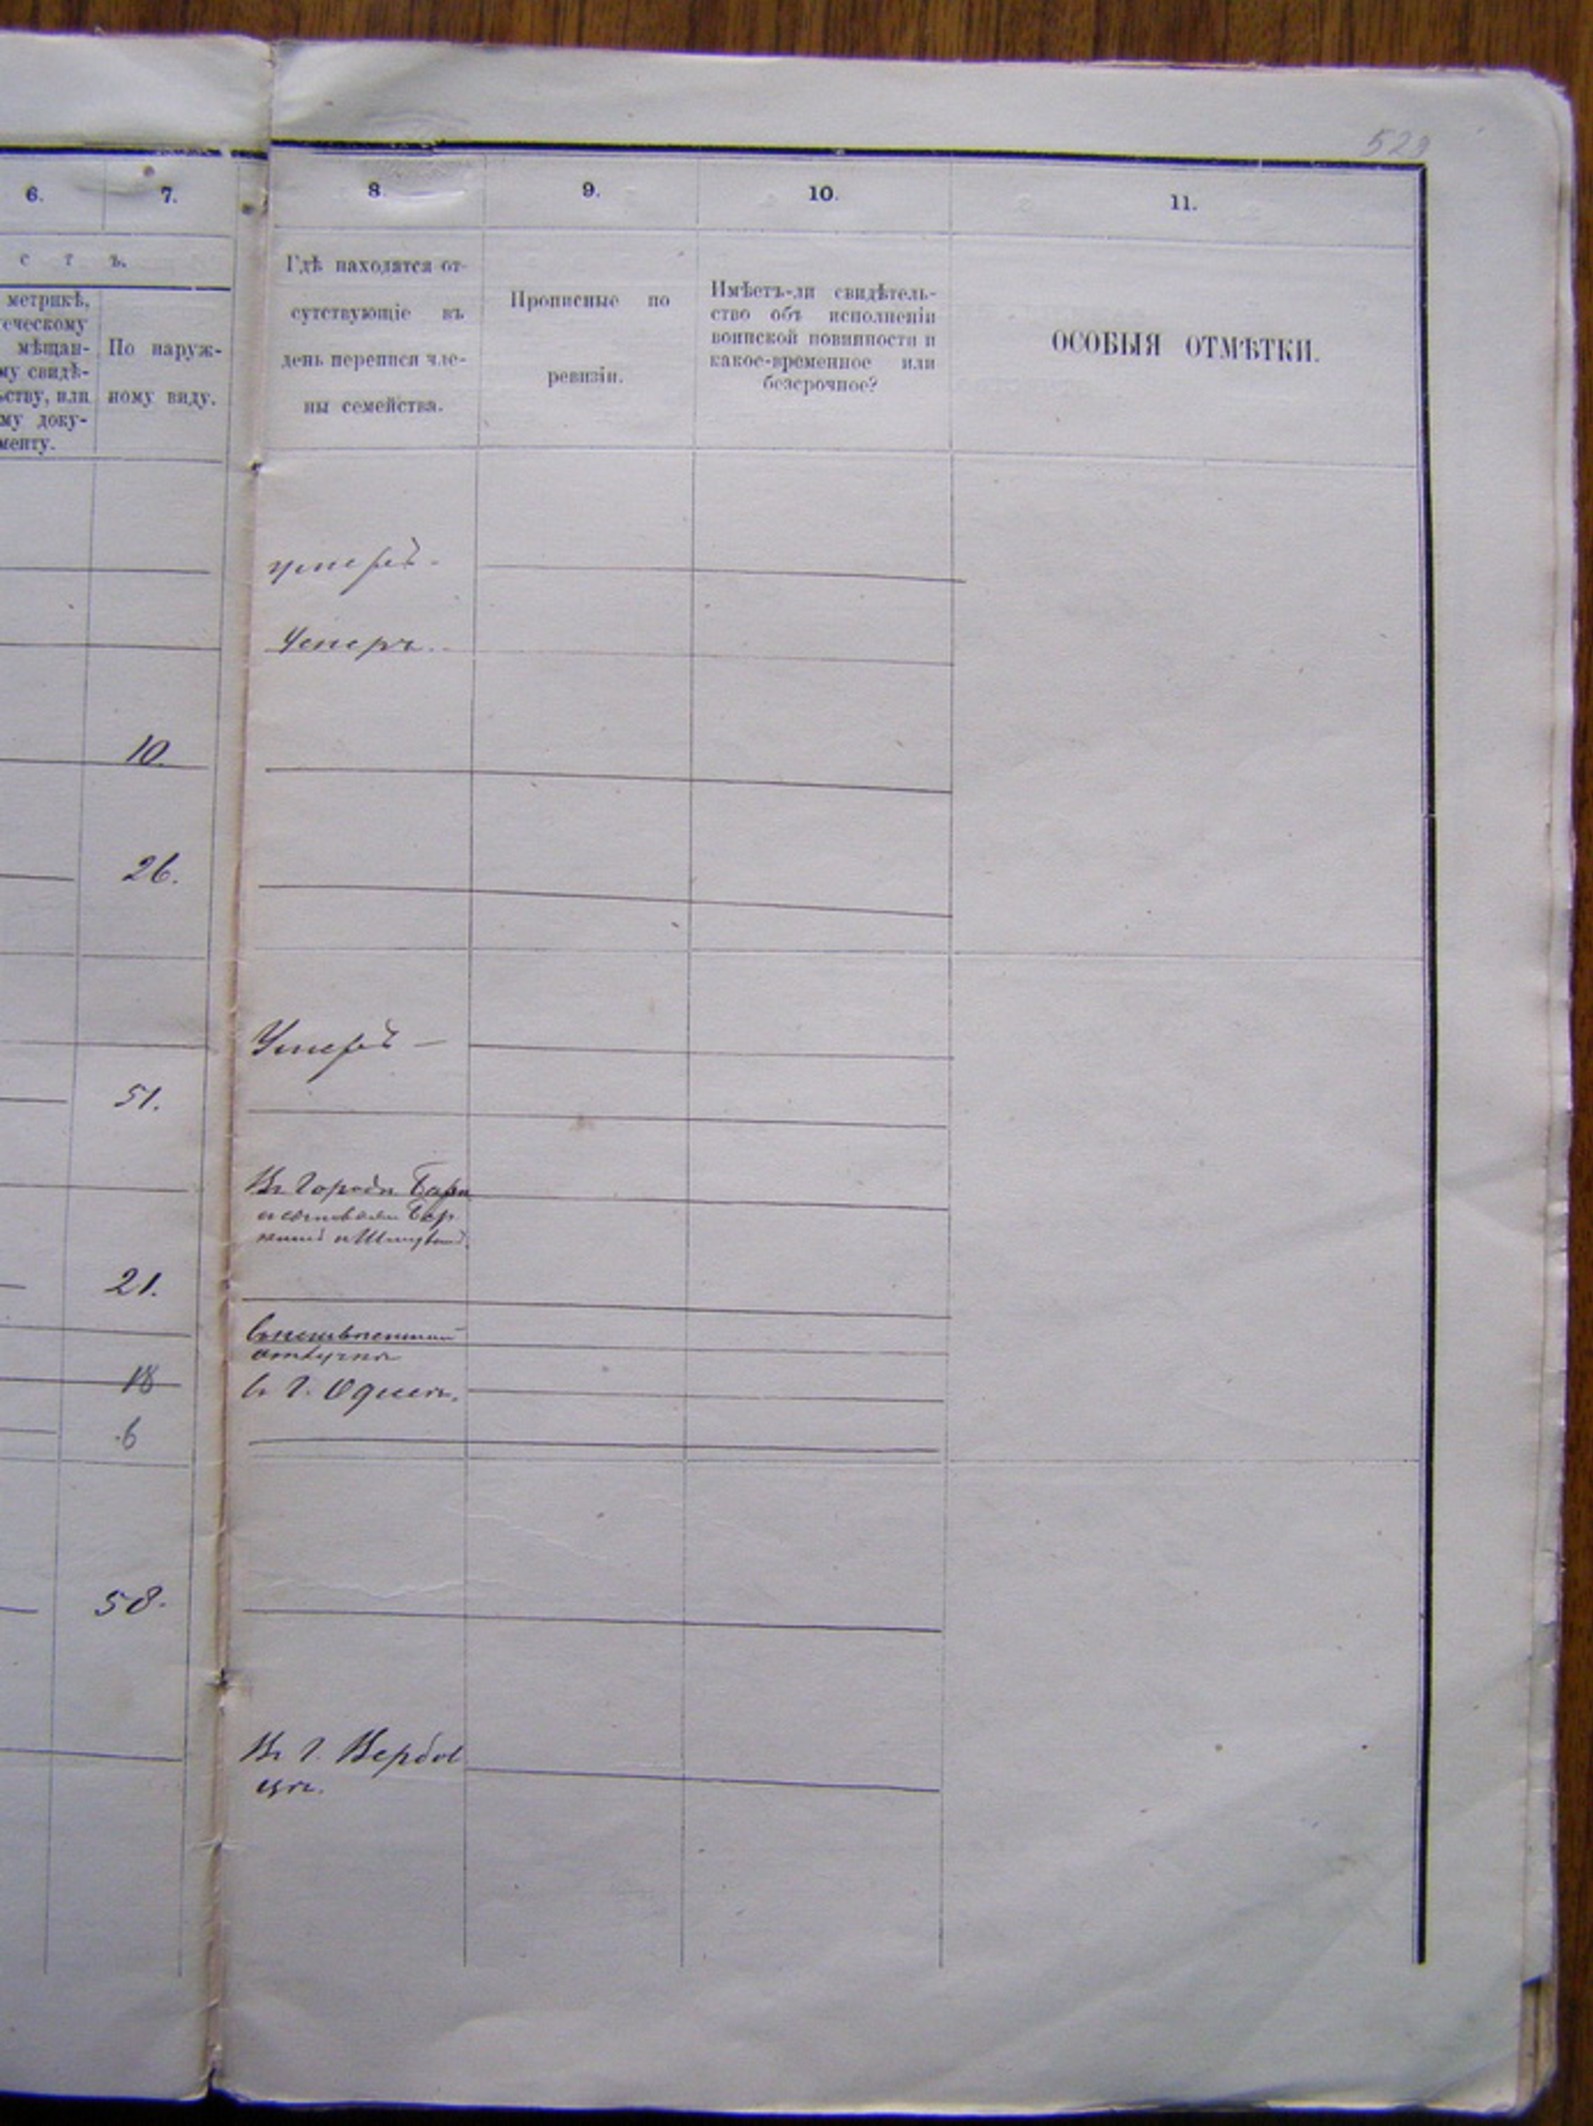 529
6.
7.
8.
9.
10.
11.
с т ъ.
метрикѣ,
ческому
мѣщан-
му свидѣ-
ьству, или
му доку-
менту.
По наруж-
ному виду.
Гдѣ находятся от-
сутствующіе въ
день переписи чле-
ны семейства.
Прописные по
ревизіи.
Имѣетъ-ли свидѣтель-
ство объ исполненіи
воинской повинности и
какое-временное или
безсрочное?
ОСОБЫЯ ОТМѢТКИ.
умеръ.
Умеръ.
10.
26.
Умеръ
51.
Въ Городѣ
21.
18
въ Г. Одессѣ.
6
58.
Въ Г. Вербов
цѣ.